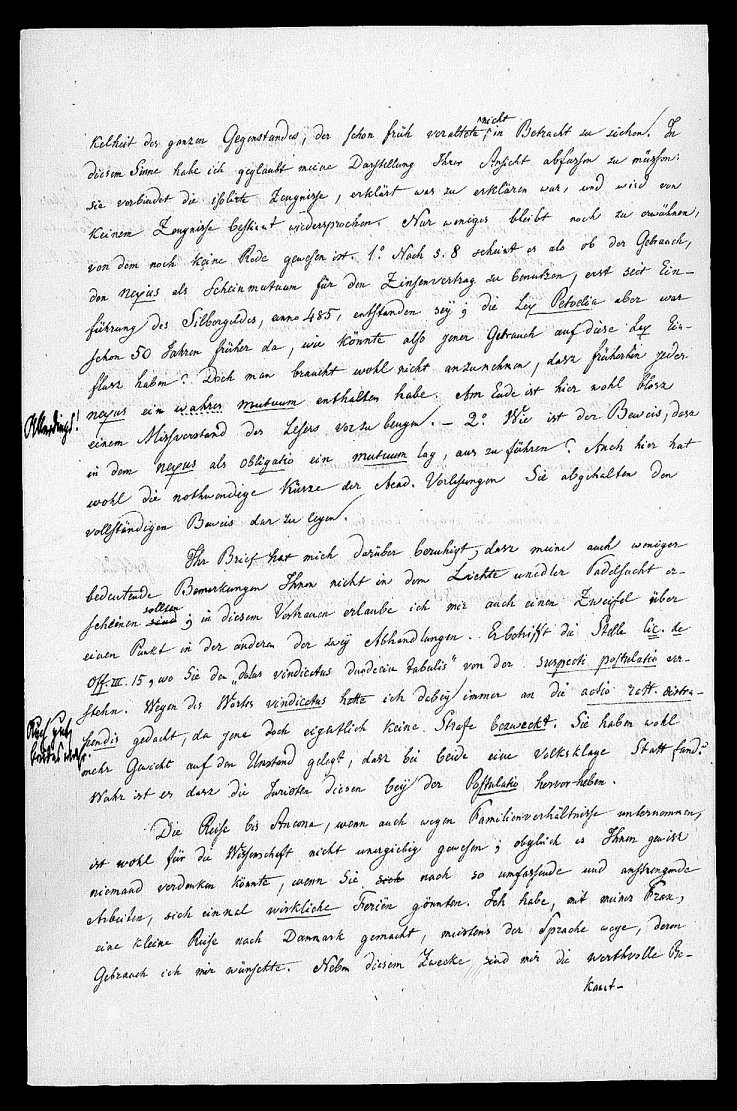 kelheit des ganzen Gegenstandes, der schon früh veraltete, nicht in Betracht zu ziehen. In
diesem Sinne habe ich geglaubt meine Darstellung Ihrer Ansicht abfassen zu müssen:
sie verbindet die isolirte Zeugnisse, erklärt was zu erklären war, und wird von
keinem Zeugnisse bestimt wiedersprochen. Nur weniges bleibt noch zu erwähnen,
von dem noch keine Rede gewesen ist. 1.° Nach S. 8 scheint es als ob der Gebrauch,
den nexus als Scheinmutuum für den Zinsenvertrag zu benutzen, erst seit Ein-
führung des Silbergeldes, anno 485, entstanden sey; die Lex Petelia aber war
schon 50 Jahren früher da, wie könnte also jener Gebrauch auf diese Lex Ein-
fluss haben? Doch man braucht wohl nicht anzunehmen, dass früherhin jeder
Allerdings!
nexus ein wahres mutuum enthalten habe. Am Ende ist hier wohl bloss
einem Missverstand des Lesers vorzubeugen. – 2.° Wie ist der Beweis, dass
in dem nexus als obligatio ein mutuum lag, aus zu führen? Auch hier hat
wohl die nothwendige Kürze der Acad. Vorlesungen Sie abgehalten den
vollständigen Beweis dar zu legen.
Ihr Brief hat mich darüber beruhigt, dass meine auch weniger
bedeutende Bemerkungen Ihnen nicht in dem Lichte unedler Tadelsucht er-
scheinen sollen; in diesem Vertrauen erlaube ich mir auch einen Zweifel über
einen Punkt in der anderen der zwey Abhandlungen. Er betrifft die Stelle Cic. de
Off. III. 15, wo Sie den „Dolus vindicatus duodecim tabulis" von der suspecti postulatio ver-
stehn. Wegen des Wortes vindicatus hatte ich dabey immer an die actio ratt. distra-
hendis gedacht, da jene doch eigentlich keine Strafe bezweckt. Sie haben wohl
mehr Gewicht auf den Umstand gelegt, dass bei beide eine Volksklage Statt fand?
Wahr ist es dass die Juristen diesen bey der Postulatio hervorheben.
Die Reise bis Ancona, wenn auch wegen Familienverhältnisse unternommen,
ist wohl für die Wissenschaft nicht unergiebig gewesen; obgleich es Ihnen gewiss
niemand verdenken könnte, wenn Sie sich nach so umfassende und anstrengende
Arbeiten, sich einmal wirkliche Feriën gönnten. Ich habe, mit meiner Frau,
eine kleine Reise nach Danmark gemacht, meistens der Sprache wege, deren
Gebrauch ich mir wünschte. Neben diesem Zwecke sind mir die werthvolle Be-
kant-